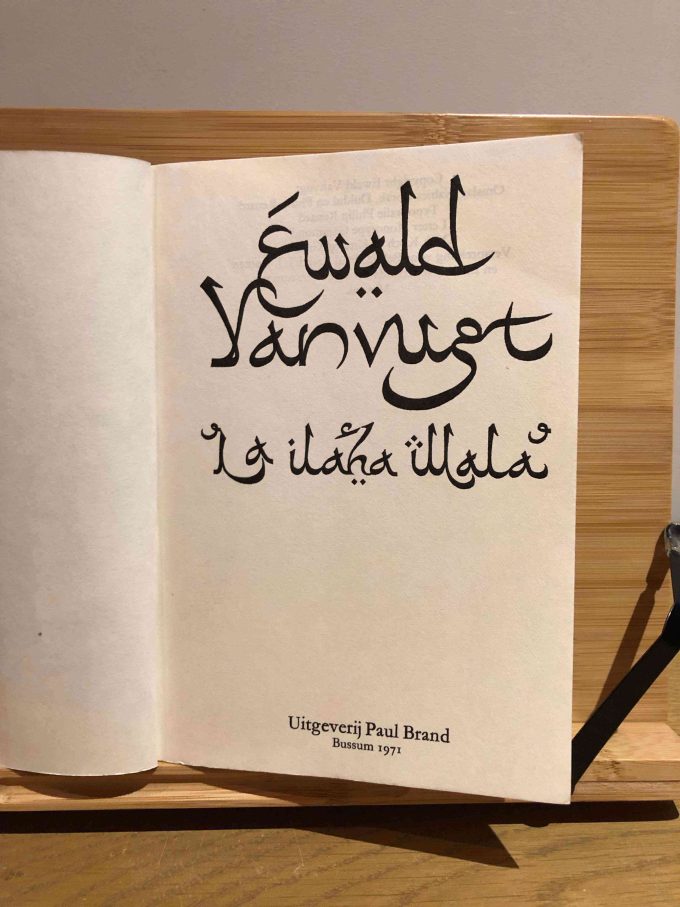 Ewald
Vanvugt
'La ilaha illala'
Uitgeverij Paul Brand
Bussum 1971